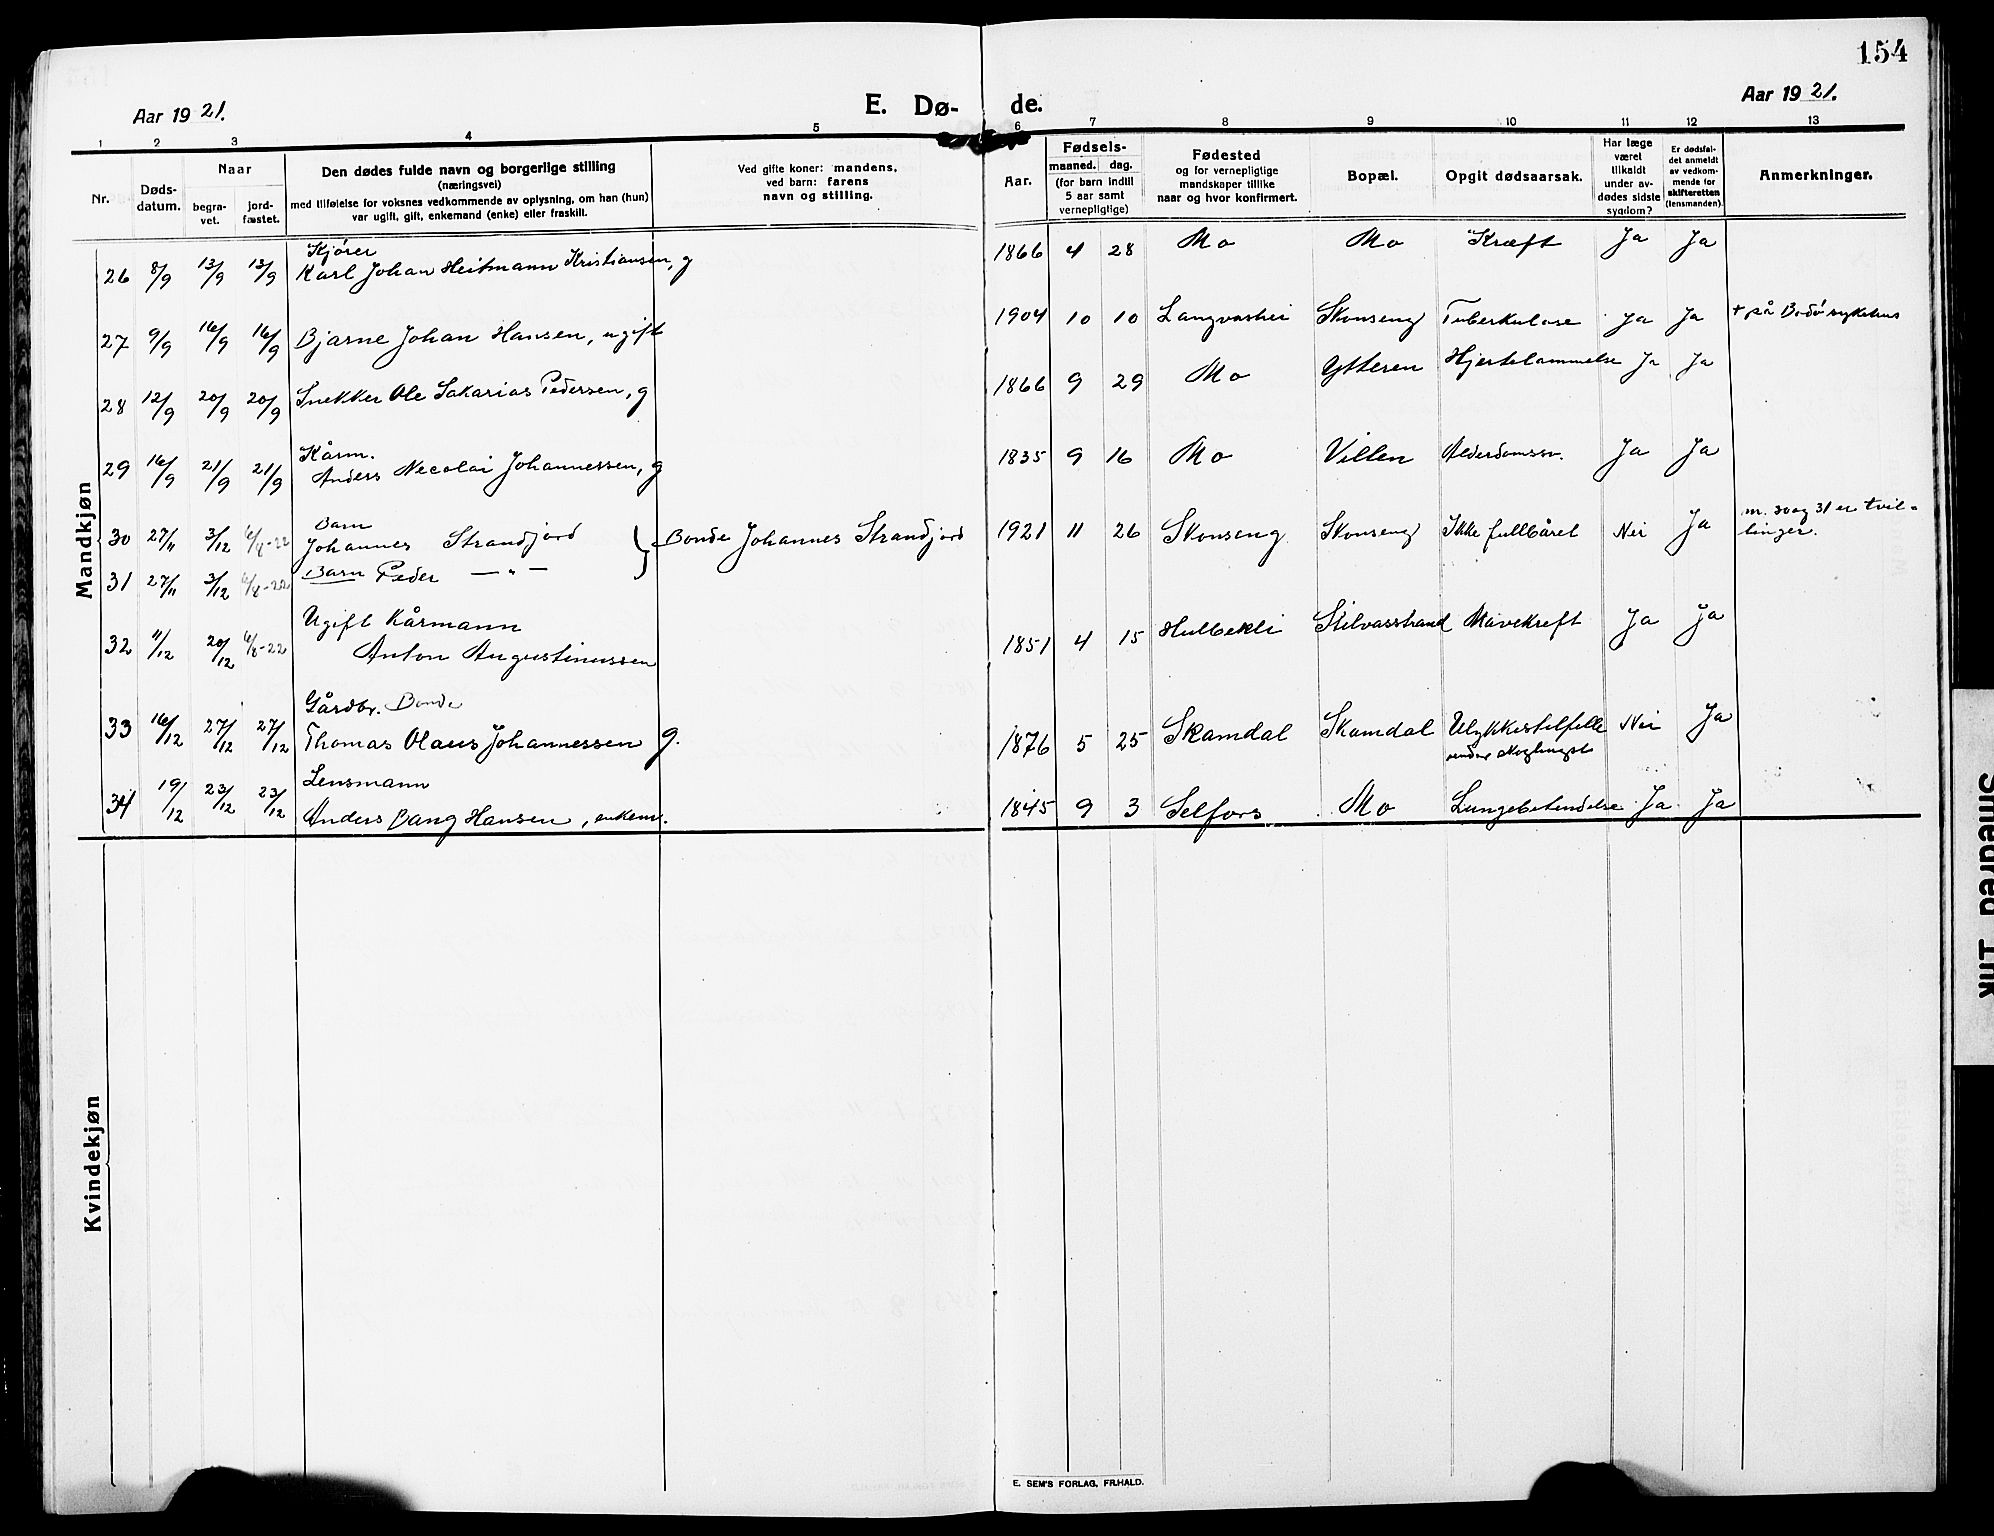 154
Aar 1921.
E. Dø-
de.
Aar 1921.
1 2 3 4 5 6 7 8 9 10 11 12 13
Nr.
Døds-
datum.
Naar
begra-
vet.
jord-
fæstet.
Den dødes fulde navn og borgerlige stilling
(næringsvei)
med tilføielse for voksnes vedkommende av oplysning, om han (hun)
var ugift, gift, enkemand (enke) eller fraskilt.
Ved gifte koner: mandens,
ved barn: farens
navn og stilling.
Aar.
Fødsels-
maaned. dag.
(for barn indtil
5 aar samt
vernepligtige)
Fødested
og for vernepligtige
mandskaper tillike
naar og hvor konfirmert.
Bopæl.
Opgit dødsaarsak.
Har læge
været
tilkaldt
under av-
dødes sidste
sygdom?
Er dødsfal-
det anmeldt
av vedkom-
mende for
skifteretten
(lensmanden).
Anmerkninger.
Mandkjøn
Kjører
26 8/9 13/9 13/9 Karl Johan Heitmann Kristiansen, g 1866 4 28 Mo Mo Kræft Ja Ja
27 9/9 16/9 16/9 Bjarne Johan Hansen, ugift 1904 10 10 Langvashei Skonseng Tuberkulose Ja Ja + på Bodø sykehus
28 12/9 20/9 20/9 Snekker Ole Sakarias Pedersen, g 1866 9 29 Mo Ytteren Hjertelammelse Ja Ja
Kårm.
29 16/9 21/9 21/9 Anders Necolai Johannessen, g 1835 9 16 Mo Villen Alderdomssv. Ja Ja
Barn
30 27/11 3/12 6/8-22 Johannes Strandjord } Bonde Johannes Strandjord 1921 11 26 Skonseng Skonseng Ikke fullbåret Nei Ja nr. 30 og 31 er tvil-
linger.
31 27/11 3/12 6/8-22 Barn Peder — " —
Ugift Kårmann
32 11/12 20/12 6/8-22 Anton Augustinussen 1851 4 15 Hulbekli Stilvasstrand Mavekreft Ja Ja
Gårdbr. Bonde
33 16/12 27/12 27/12 Thomas Olaus Johannessen g. 1876 5 25 Skamdal Skamdal Ulykkestilfelle Nei Ja
under
Lensmann
34 19/12 23/12 23/12 Anders Bang Hansen, enkem. 1845 9 3 Selfors Mo Lungebetendelse Ja Ja
Kvindekjøn
E. SEM'S FORLAG, FR.HALD.
Smeared Ink